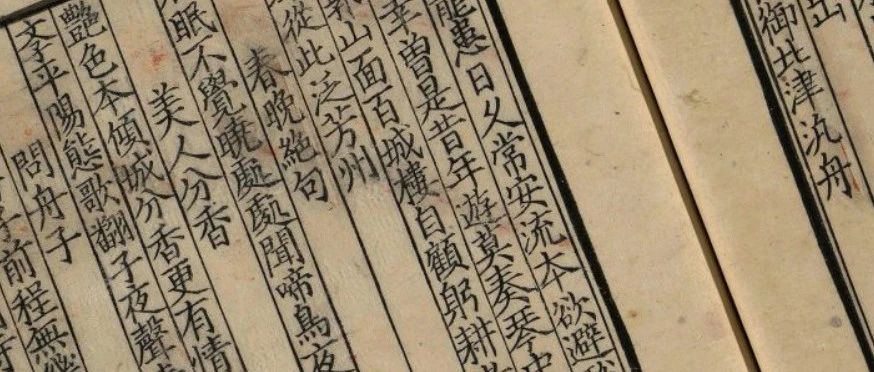 御北津汎舟
患日夕常安流本欲避
幸曾是昔年遊莫奏琴中
山面百城樓自顧躬耕
從此泛芳州
春晚絕句
眠不覺曉處處聞啼鳥夜
美人分香
艷色本傾城分香更有情
李平陽態歌翻子夜聲
問舟子
前程無